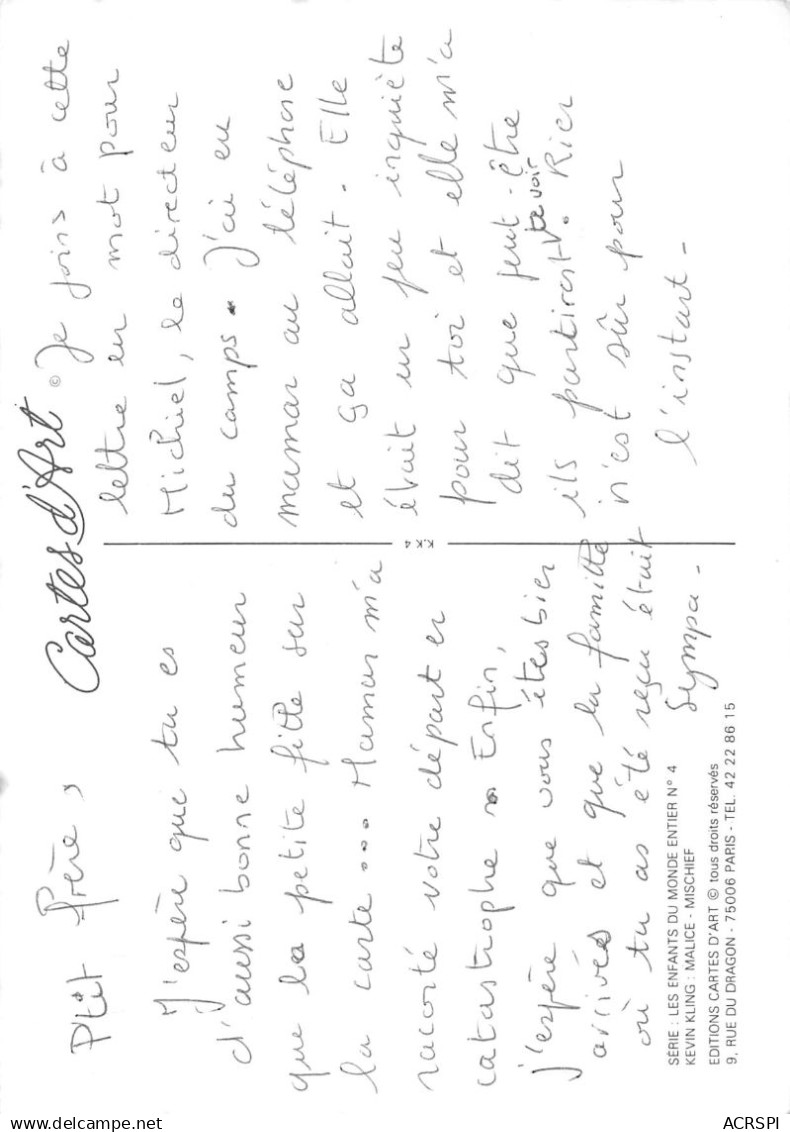 Cartes d'Art ©
P'tit frère,
J'espère que tu es
d'aussi bonne humeur
que la petite fille sur
la carte... Maman m'a
raconté votre départ en
catastrophe. Enfin,
j'espère que vous êtes bien
arrivés et que la famille
où tu as été reçu était
sympa -
SÉRIE : LES ENFANTS DU MONDE ENTIER N° 4
KEVIN KLING : MALICE - MISCHIEF
EDITIONS CARTES D'ART © tous droits réservés
9, RUE DU DRAGON - 75006 PARIS - TEL. 42 22 86 15
K.K 4
Je joins à cette
lettre un mot pour
Michiel, le directeur
du camps. J'ai eu
maman au téléphone
et ça allait. Elle
était un peu inquiète
pour toi et elle m'a
dit que peut-être
ils partiront te voir. Rien
n'est sûr pour
l'instant -
ACRSPI